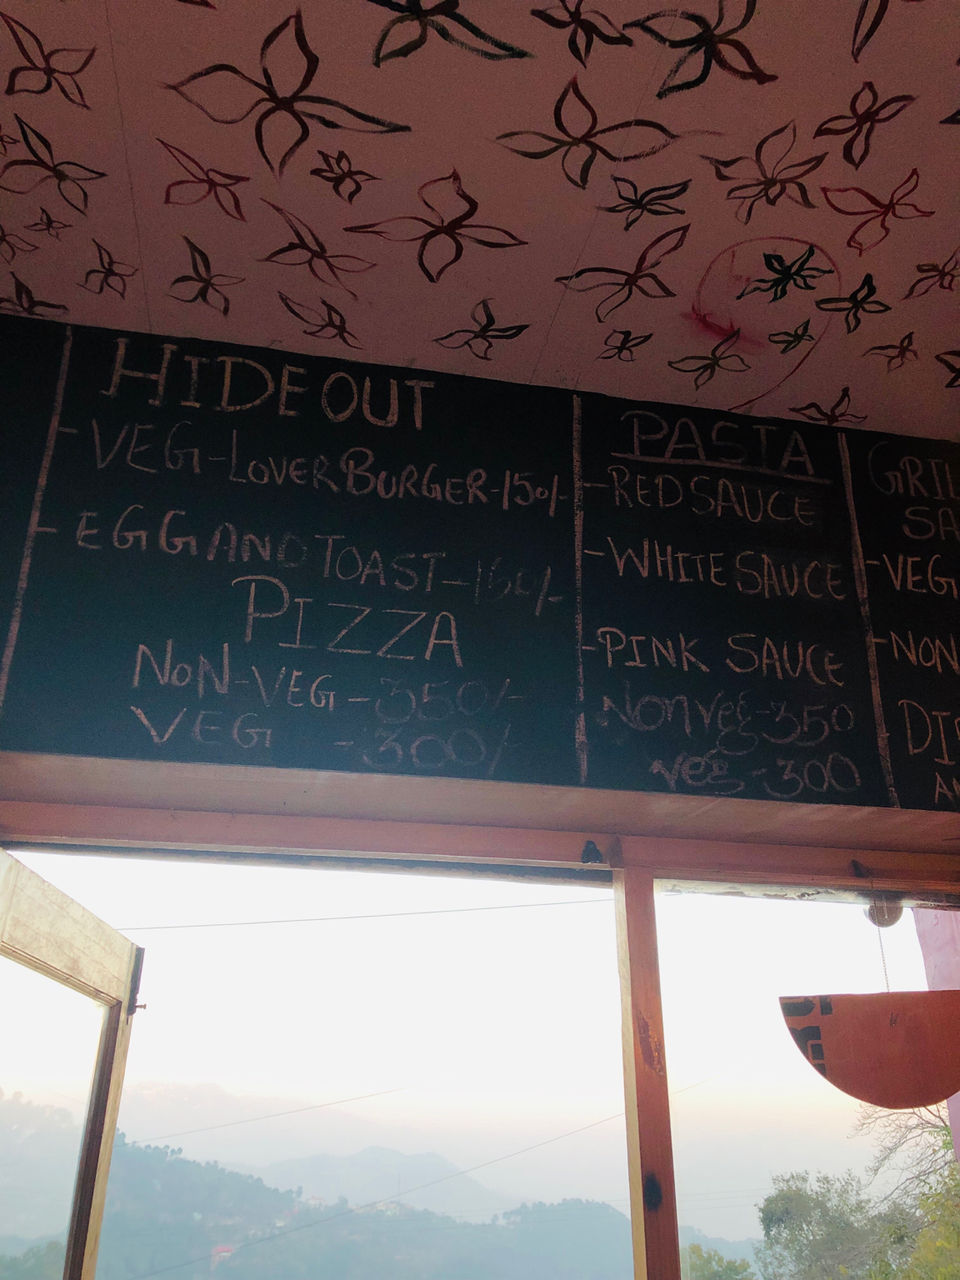 HIDEOUT
- VEG-LOVER BURGER-150/-
- EGG AND TOAST-150/-
PIZZA
NON-VEG - 350/-
VEG - 300/-
PASTA
- RED SAUCE
- WHITE SAUCE
- PINK SAUCE
Nonveg-350
veg-300
GRIL
SA
- VEG
- NON